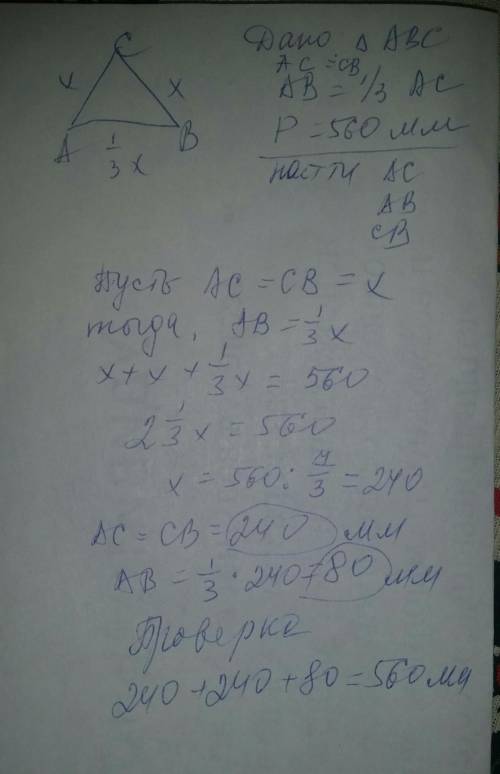 C
x x
A B
1/3 x
Дано △ ABC
AC = CB
AB = 1/3 AC
P = 560 мм
найти AC
AB
CB
Пусть AC = CB = x
тогда, AB = 1/3 x
x + x + 1/3 x = 560
2 1/3 x = 560
x = 560 : 7/3 = 240
AC = CB = 240 мм
AB = 1/3 · 240 = 80 мм
Проверка
240 + 240 + 80 = 560 мм